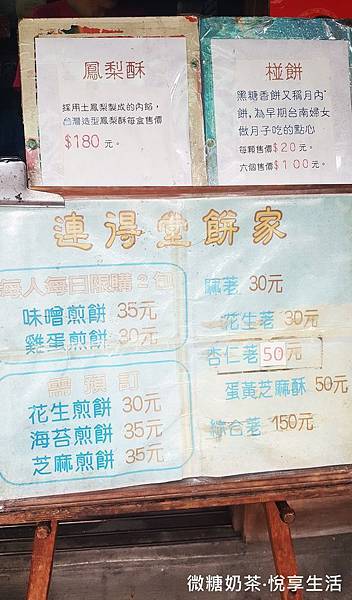 鳳梨酥
採用土鳳梨製成的內餡,
台灣造型鳳梨酥每盒售價
$180元。
椪餅
黑糖香餅又稱月內"
餅,為早期台南婦女
做月子吃的點心
每顆售價$20元。
六個售價$100元。
連得堂餅家
每人每日限購2包
味噌煎餅 35元
雞蛋煎餅 30元
需預訂
花生煎餅 30元
海苔煎餅 35元
芝麻煎餅 35元
麻荖 30元
花生荖 30元
杏仁荖 50元
蛋黃芝麻酥 50元
綜合荖 150元
微糖奶茶·悅享生活